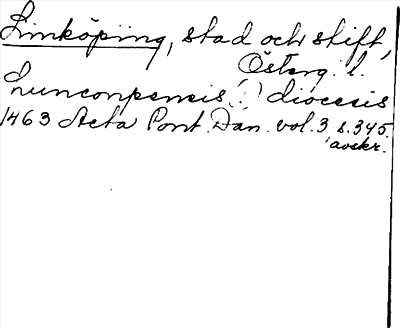 Linköping, stad och stift,
Österg. l.
Lunconpensis (!) diocesis
1463 Acta Pont. Dan. vol. 3 s. 345.
avskr.